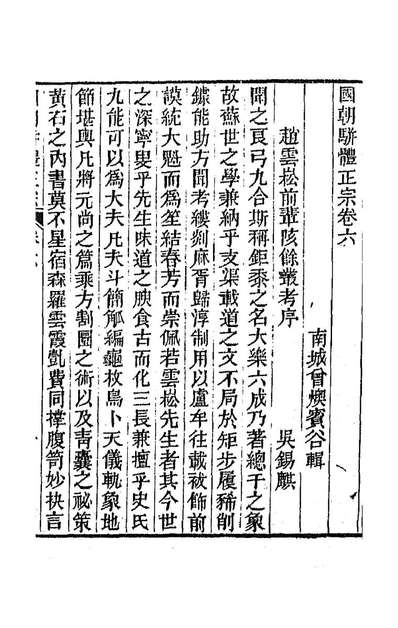 國朝駢體正宗卷六
南城曾燠賓谷輯
趙雲崧前輩陔餘叢考序
吳錫麒
聞之良弓九合斯稱鉅黍之名大樂六成乃著總干之象
故蘇世之學兼納乎支渠載道之文不局於矩步履豨削
鐻能助方聞考縷剡麻胥歸淳制用以盧牟往載祓飾前
謨統大魁而為笙結春芳而崇佩若雲崧先生者其今世
之深寧叟乎先生味道之腴食古而化三長兼擅乎史氏
九能可以為大夫凡夫斗簡觚編龜枚鳥卜天儀軌象地
節堪輿凡將元尚之篇乘方割圜之術以及青囊之祕策
黃石之內書莫不星宿森羅雲霞凱費同撑腹笥妙抉言